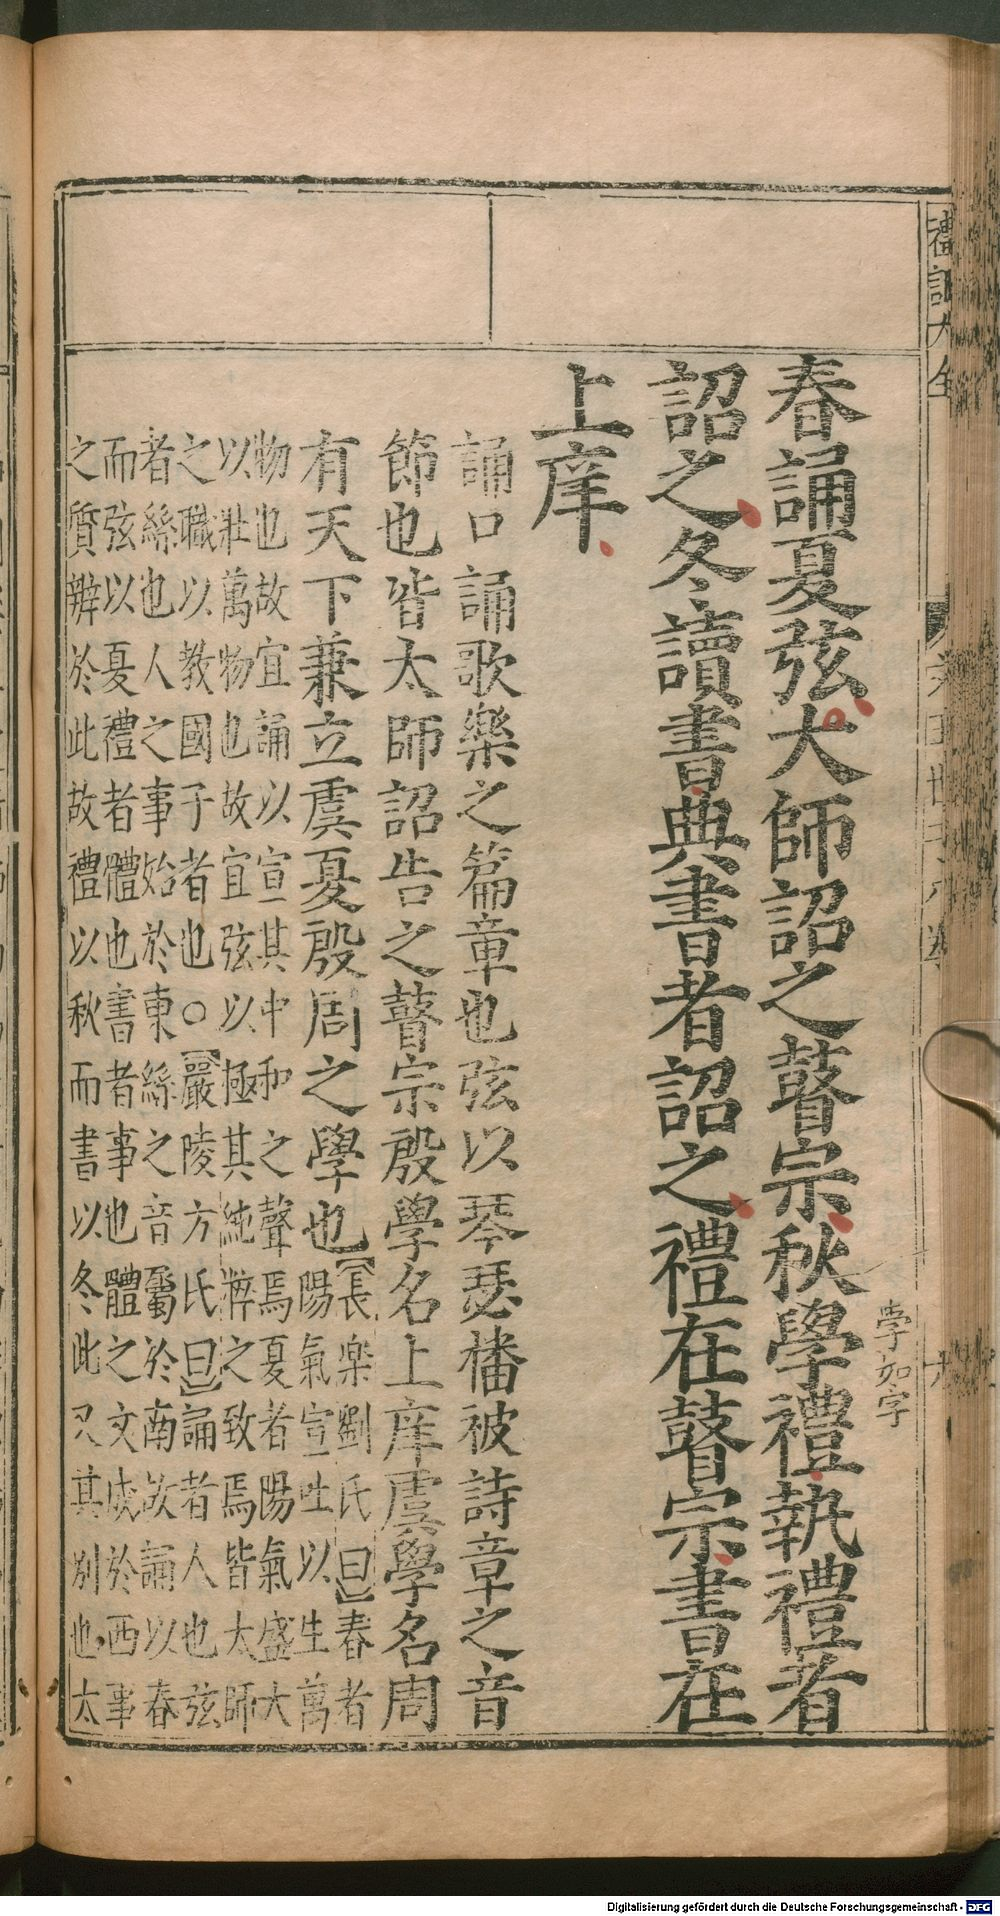 禮記大全
春誦夏弦大師詔之瞽宗秋學禮執禮者
學如字
詔之冬讀書典書者詔之禮在瞽宗書在
上庠
誦口誦歌樂之篇章也弦以琴瑟播被詩章之音
節也皆太師詔告之瞽宗殷學名上庠虞學名周
有天下兼立虞夏殷周之學也
【長樂劉氏曰】春者
陽氣宣吐以生萬
物也故宜誦以宣其中和之聲焉夏者陽氣盛大
以壯萬物也故宜弦以極其純粹之致焉皆大師
之職以教國子者也○【嚴陵方氏曰】誦者人也弦
者絲也人之事始於東絲之音屬於南故誦以春
而弦以夏禮者體也書者事也體之文成於西事
之質辨於此故禮以秋而書以冬此又其別也太
Digitalisierung gefördert durch die Deutsche Forschungsgemeinschaft - DFG